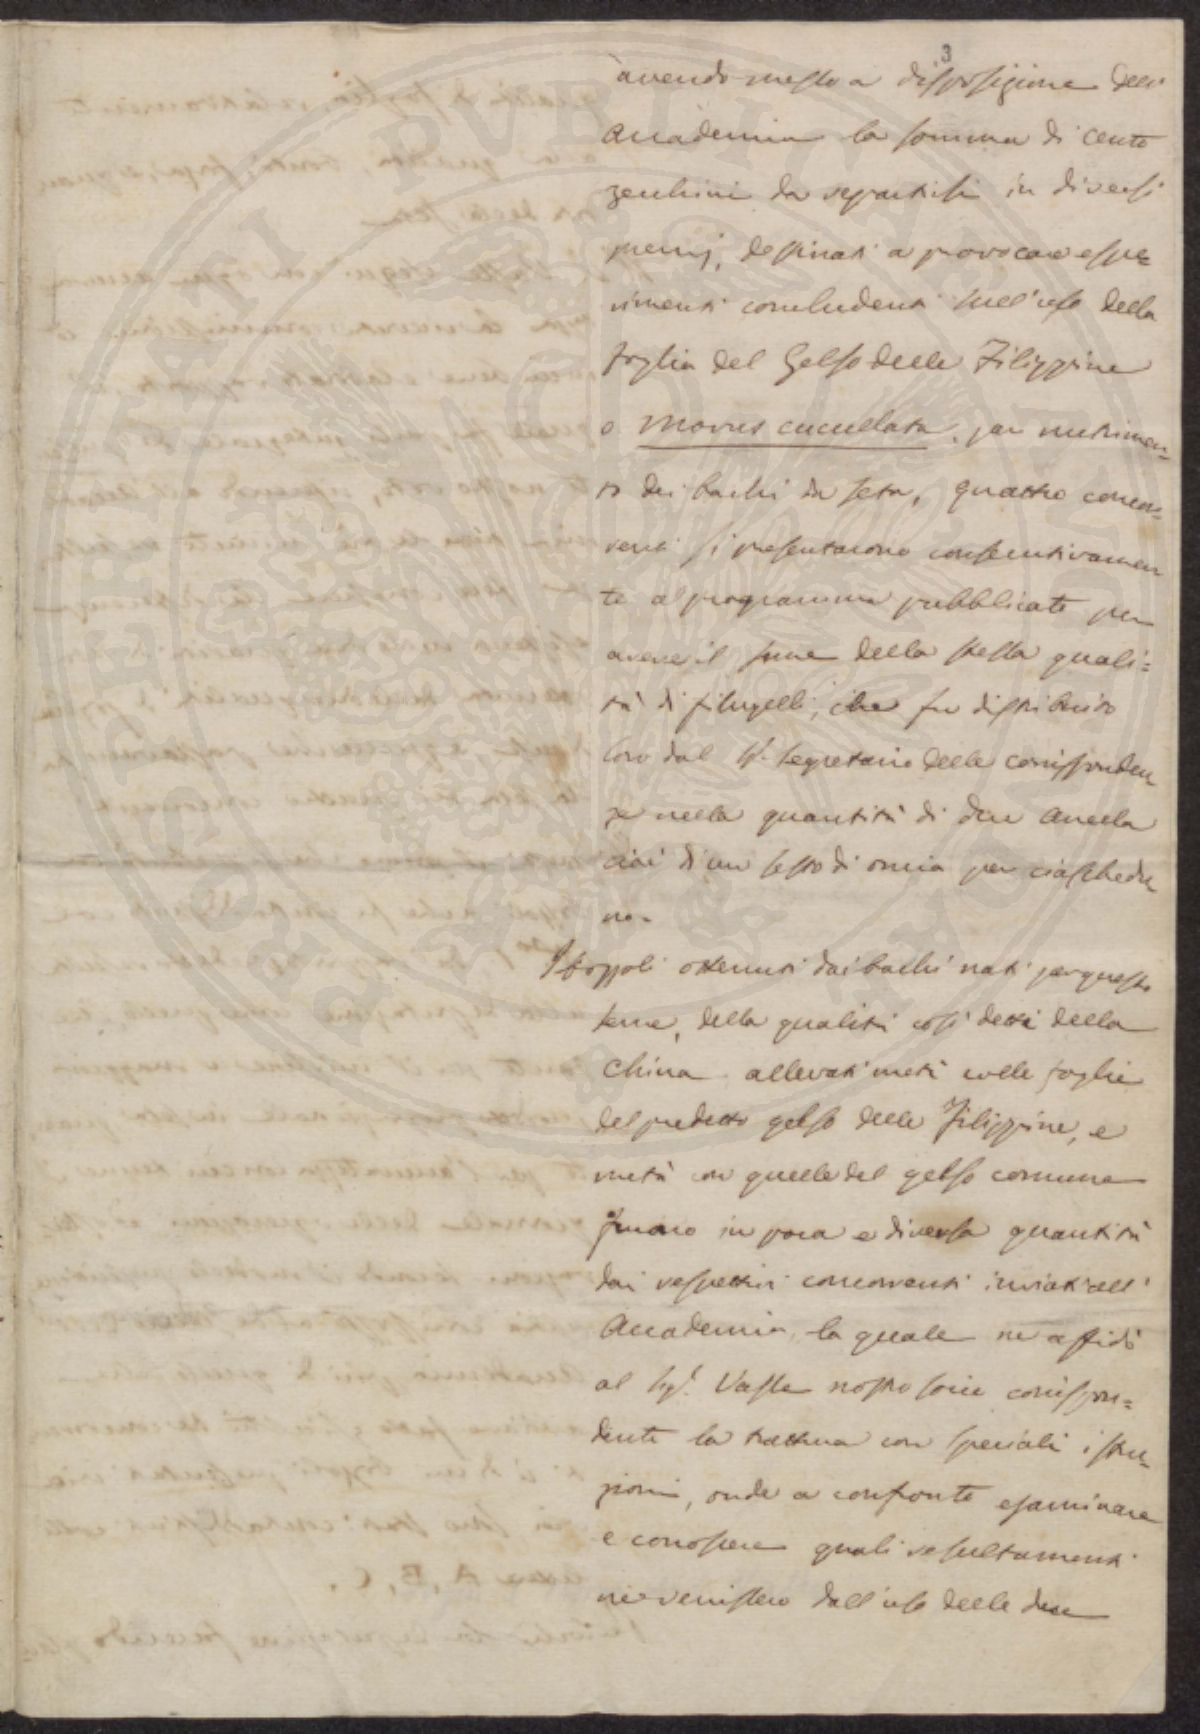 3
avendo messo a disposizione dell'
Accademia la somma di cento
zecchini da repartirsi in diversi
premj, destinati a provocare espe=
rimenti concludenti sull'uso della
foglia del Gelso delle Filippine
o Morus cucullata, per nutrimen=
to dei bachi da seta, quattro concor=
renti si presentarono consecutivamen
te al programma pubblicato per
avere il seme della stessa quali=
tà di filugelli, che fu distribuito
loro dal Sr. Segretario delle corrisponden
ze nella quantità di due anella
cioè di un sesto di oncia per ciaschedu
no.
I bozzoli ottenuti dai bachi nati per questo
seme, della qualità così detta della
China allevati metà colle foglie
del predetto gelso delle Filippine, e
metà con quelle del gelso comune
furono in poca e diversa quantità
dai respettivi concorrenti inviati all'
Accademia, la quale ne affidò
al Sigr. Vasse nostro socio corrispon=
dente la trattura con speciali istru=
zioni, onde a confronto esaminare
e conoscere quali resultamenti
ne venissero dall'uso delle due
PROSPERITATI PVBLICAE AVGENDAE